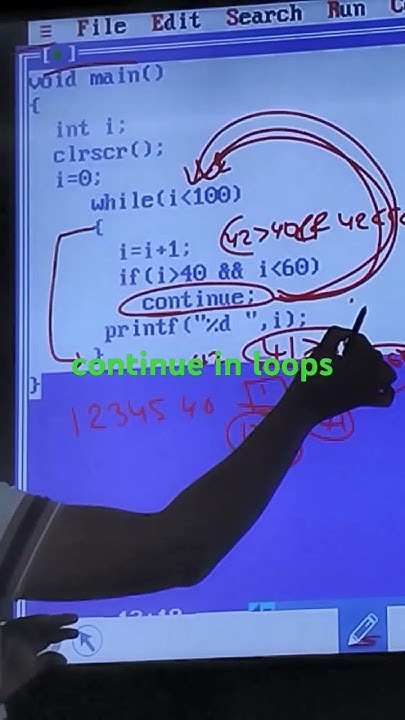 ≡ File Edit Search Run
void main()
{
int i;
clrscr();
i=0;
while(i<100)
{
i=i+1;
if(i>40 && i<60)
continue;
printf("%d ",i);
}
}
42>40
41>
continue in loops
1 2 3 4 5 40